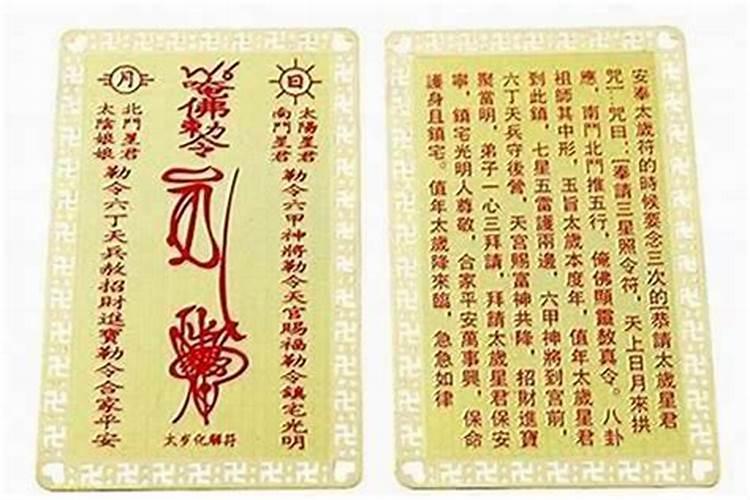 日
太陽星君
南鬥星君
勒令六甲神將勒令天官賜福勒令鎮宅光明
唵佛勅令
月
北鬥星君
太陰娘娘
勒令六丁天兵敖招財進寶勒令合家平安
太岁化解符
安奉太歲符的時候要念三次的[恭請太歲星君
咒]…咒曰：[奉請三星照令符，天上日月來拱
應，南鬥北鬥推五行，俺佛顯靈敖真令。八卦
祖師其中形，玉旨太歲本度年，值年太歲星君
到此鎮，七星五雷護兩邊，六甲神將到宮前，
六丁天兵守後營，天宮賜富神共降，招財進寶
聚當明，弟子一心三拜請，拜請太歲星君保安
寧，鎮宅光明人尊敬，合家平安萬事興，保命
護身且鎮宅。值年太歲降來臨，急急如律